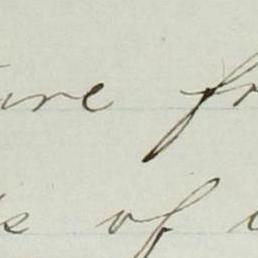 ure fr
s of